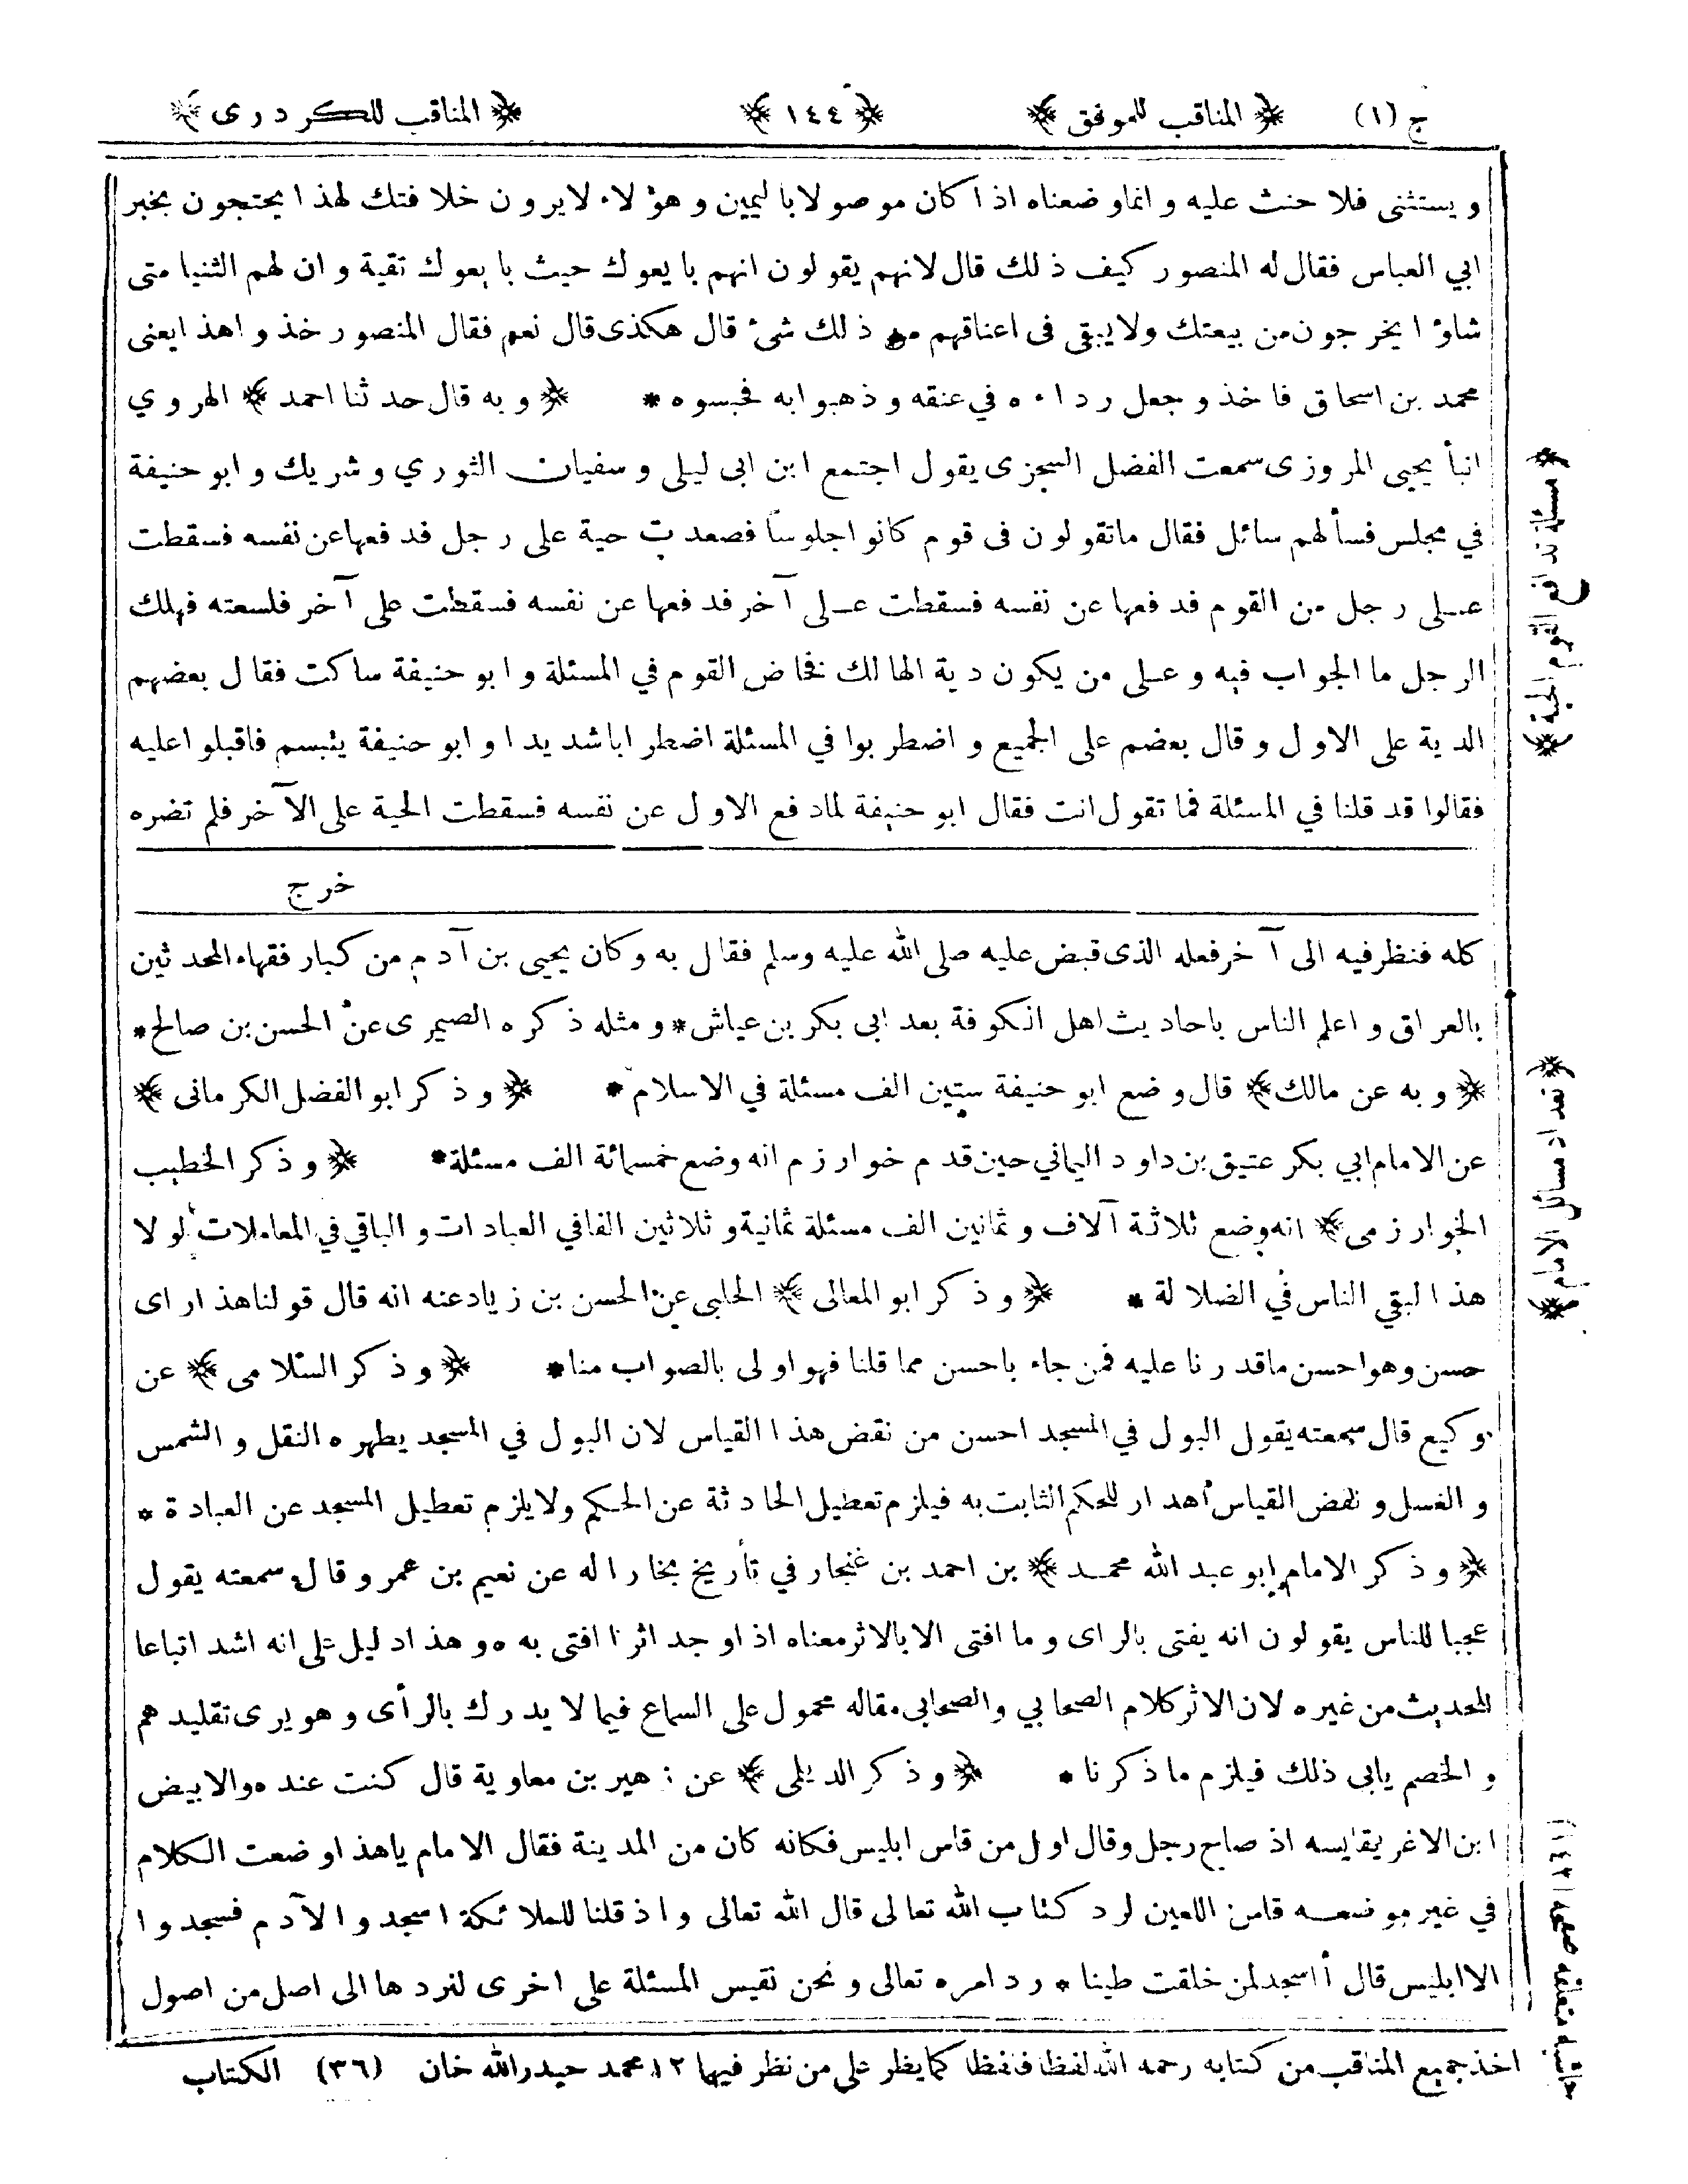 ج (١) ﴿ المناقب للموفق ﴾ ﴿ ١٤٤ ﴾ ﴿ المناقب للكردرى ﴾
ويستثنى فلا حنث عليه وانما وضعناه اذا كان موصولا باليمين وهؤلاء لايرون خلافتك لهذا يحتجون بخبر
ابي العباس فقال له المنصور كيف ذلك قال لانهم يقولون انهم بايعوك حيث بايعوك تقية وان لهم الثنيا متى
شاؤا يخرجون من بيعتك ولا يبقى فى اعناقهم من ذلك شئ قال هكذى قال نعم فقال المنصور خذوا هذا يعنى
محمد بن اسحاق فاخذ وجعل رداءه في عنقه وذهبوا به فحبسوه * ﴿ وبه قال حدثنا احمد ﴾ الهروي
انبأ يحيى المروزى سمعت الفضل السجزى يقول اجتمع ابن ابى ليلى وسفيان الثوري وشريك وابو حنيفة
في مجلس فسألهم سائل فقال ماتقولون فى قوم كانوا جلوسا فصعدت حية على رجل فدفعها عن نفسه فسقطت
على رجل من القوم فدفعها عن نفسه فسقطت على آخر فدفعها عن نفسه فسقطت على آخر فلسعته فهلك
الرجل ما الجواب فيه وعلى من يكون دية الهالك فخاض القوم في المسئلة وابو حنيفة ساكت فقال بعضهم
الدية على الاول وقال بعضم على الجميع واضطربوا في المسئلة اضطرابا شديدا وابو حنيفة يتبسم فاقبلوا عليه
فقالوا قد قلنا في المسئلة فما تقول انت فقال ابو حنيفة لما دفع الاول عن نفسه فسقطت الحية على الآخر فلم تضره
خرج
كله فنظر فيه الى آخر فعله الذى قبض عليه صلى الله عليه وسلم فقال به وكان يحيى بن آدم من كبار فقهاء المحدثين
بالعراق واعلم الناس باحاديث اهل الكوفة بعد ابى بكر بن عياش * ومثله ذكره الصيمرى عن الحسن بن صالح *
﴿ وبه عن مالك ﴾ قال وضع ابو حنيفة ستين الف مسئلة في الاسلام * ﴿ وذكر ابو الفضل الكرمانى ﴾
عن الامام ابي بكر عتيق بن داود اليماني حين قدم خوارزم انه وضع خمسمائة الف مسئلة * ﴿ وذكر الخطيب
الخوارزمى ﴾ انه وضع ثلاثة آلاف وثمانين الف مسئلة ثمانية وثلاثين الفا في العبادات والباقي في المعاملات لولا
هذا لبقي الناس في الضلالة * ﴿ وذكر ابو المعالى ﴾ الحلبى عن الحسن بن زياد عنه انه قال قولنا هذا راى
حسن وهو احسن ماقدرنا عليه فمن جاء باحسن مما قلنا فهو اولى بالصواب منا * ﴿ وذكر السلامى ﴾ عن
وكيع قال سمعته يقول البول في المسجد احسن من نقض هذا القياس لان البول في المسجد يطهره النقل والشمس
والغسل ونقض القياس أهدار للحكم الثابت به فيلزم تعطيل الحادثة عن الحكم ولا يلزم تعطيل المسجد عن العبادة *
﴿ وذكر الامام ابو عبد الله محمد ﴾ بن احمد بن غنجار في تأريخ بخارا له عن نعيم بن عمرو قال سمعته يقول
عجبا للناس يقولون انه يفتى بالراى وما افتى الا بالاثر معناه اذا وجد اثرا افتى به وهذا دليل على انه اشد اتباعا
للحديث من غيره لان الاثر كلام الصحابي والصحابى مقاله محمول على السماع فيما لا يدرك بالرأى وهو يرى تقليدهم
والخصم يابى ذلك فيلزم ما ذكرنا * ﴿ وذكر الديلمى ﴾ عن زهير بن معاوية قال كنت عنده والابيض
ابن الاغر يقايسه اذ صاح رجل وقال اول من قاس ابليس فكانه كان من المدينة فقال الامام ياهذا وضعت الكلام
في غير موضعه قاس اللعين لرد كتاب الله تعالى قال الله تعالى واذ قلنا للملائكة اسجدوا لآدم فسجدوا
الا ابليس قال أاسجد لمن خلقت طينا * رد امره تعالى ونحن نقيس المسئلة على اخرى لنردها الى اصل من اصول
اخذ جميع المناقب من كتابه رحمه الله لفظا فلفظا كما يظهر على من نظر فيها ١٢ محمد حيدرالله خان (٣٦) الكتاب
﴿ مسئلة تدافع القوم الحية ﴾
﴿ تعداد مسائل الامام ﴾
حاشيه متعلقه صفحه ١٤٣